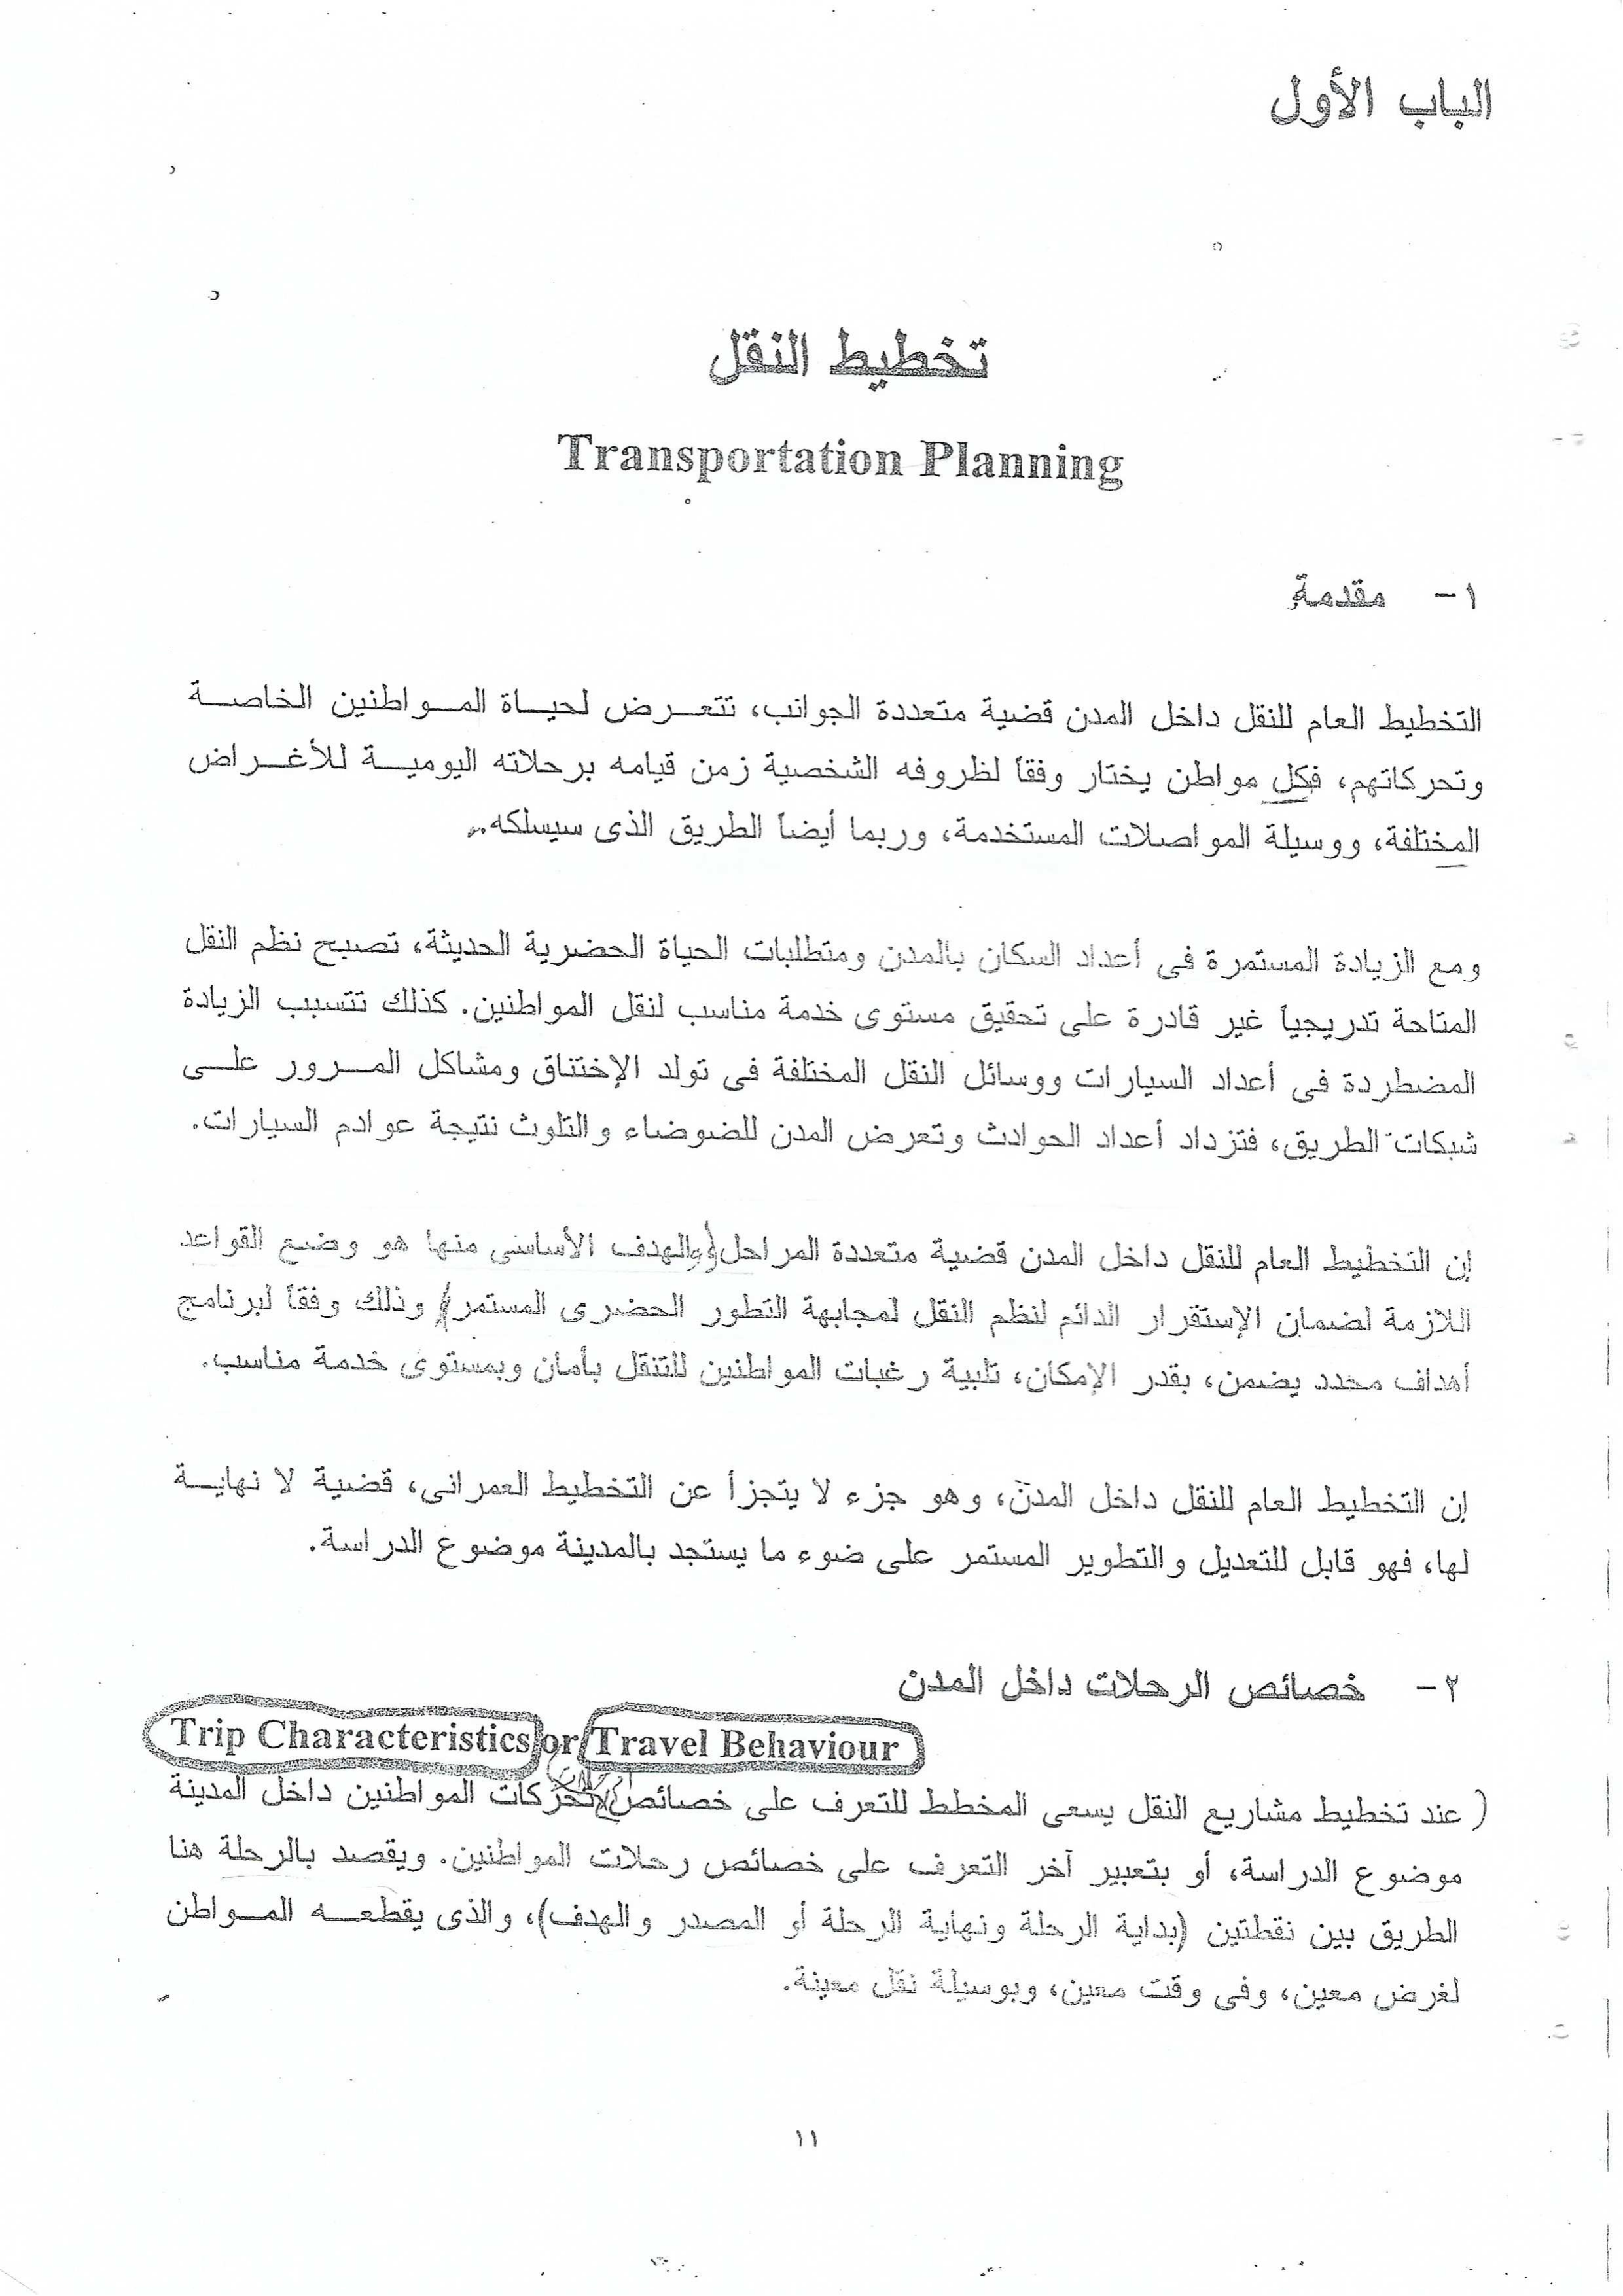 الباب الأول
تخطيط النقل
Transportation Planning
١- مقدمة
التخطيط العام للنقل داخل المدن قضية متعددة الجوانب، تتعرض لحياة المواطنين الخاصة
وتحركاتهم، فكل مواطن يختار وفقاً لظروفه الشخصية زمن قيامه برحلاته اليومية للأغراض
المختلفة، ووسيلة المواصلات المستخدمة، وربما أيضاً الطريق الذى سيسلكه.
ومع الزيادة المستمرة فى أعداد السكان بالمدن ومتطلبات الحياة الحضرية الحديثة، تصبح نظم النقل
المتاحة تدريجياً غير قادرة على تحقيق مستوى خدمة مناسب لنقل المواطنين. كذلك تتسبب الزيادة
المضطردة فى أعداد السيارات ووسائل النقل المختلفة فى تولد الإختناق ومشاكل المرور على
شبكات الطريق، فتزداد أعداد الحوادث وتعرض المدن للضوضاء والتلوث نتيجة عوادم السيارات.
إن التخطيط العام للنقل داخل المدن قضية متعددة المراحل، والهدف الأساسى منها هو وضع القواعد
اللازمة لضمان الإستقرار الدائم لنظم النقل لمجابهة التطور الحضرى المستمر، وذلك وفقاً لبرنامج
أهداف محدد يضمن، بقدر الإمكان، تلبية رغبات المواطنين للتنقل بأمان وبمستوى خدمة مناسب.
إن التخطيط العام للنقل داخل المدن، وهو جزء لا يتجزأ عن التخطيط العمرانى، قضية لا نهاية
لها، فهو قابل للتعديل والتطوير المستمر على ضوء ما يستجد بالمدينة موضوع الدراسة.
٢- خصائص الرحلات داخل المدن
Trip Characteristics or Travel Behaviour
عند تخطيط مشاريع النقل يسعى المخطط للتعرف على خصائص تحركات المواطنين داخل المدينة
موضوع الدراسة، أو بتعبير آخر التعرف على خصائص رحلات المواطنين. ويقصد بالرحلة هنا
الطريق بين نقطتين (بداية الرحلة ونهاية الرحلة أو المصدر والهدف)، والذى يقطعه المواطن
لغرض معين، وفى وقت معين، وبوسيلة نقل معينة.
١١